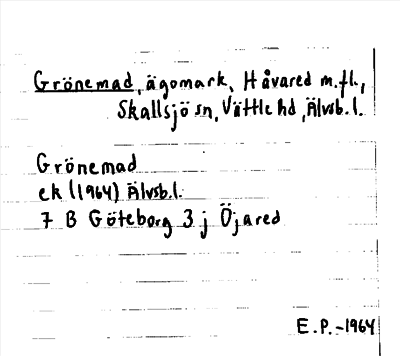 Grönemad, ägomark, Håvared m.fl.,
Skallsjö sn, Vättle hd, Älvsb.l.
Grönemad
ek (1964) Älvsb.l.
7 B Göteborg 3 j Öjared
E.P.-1964